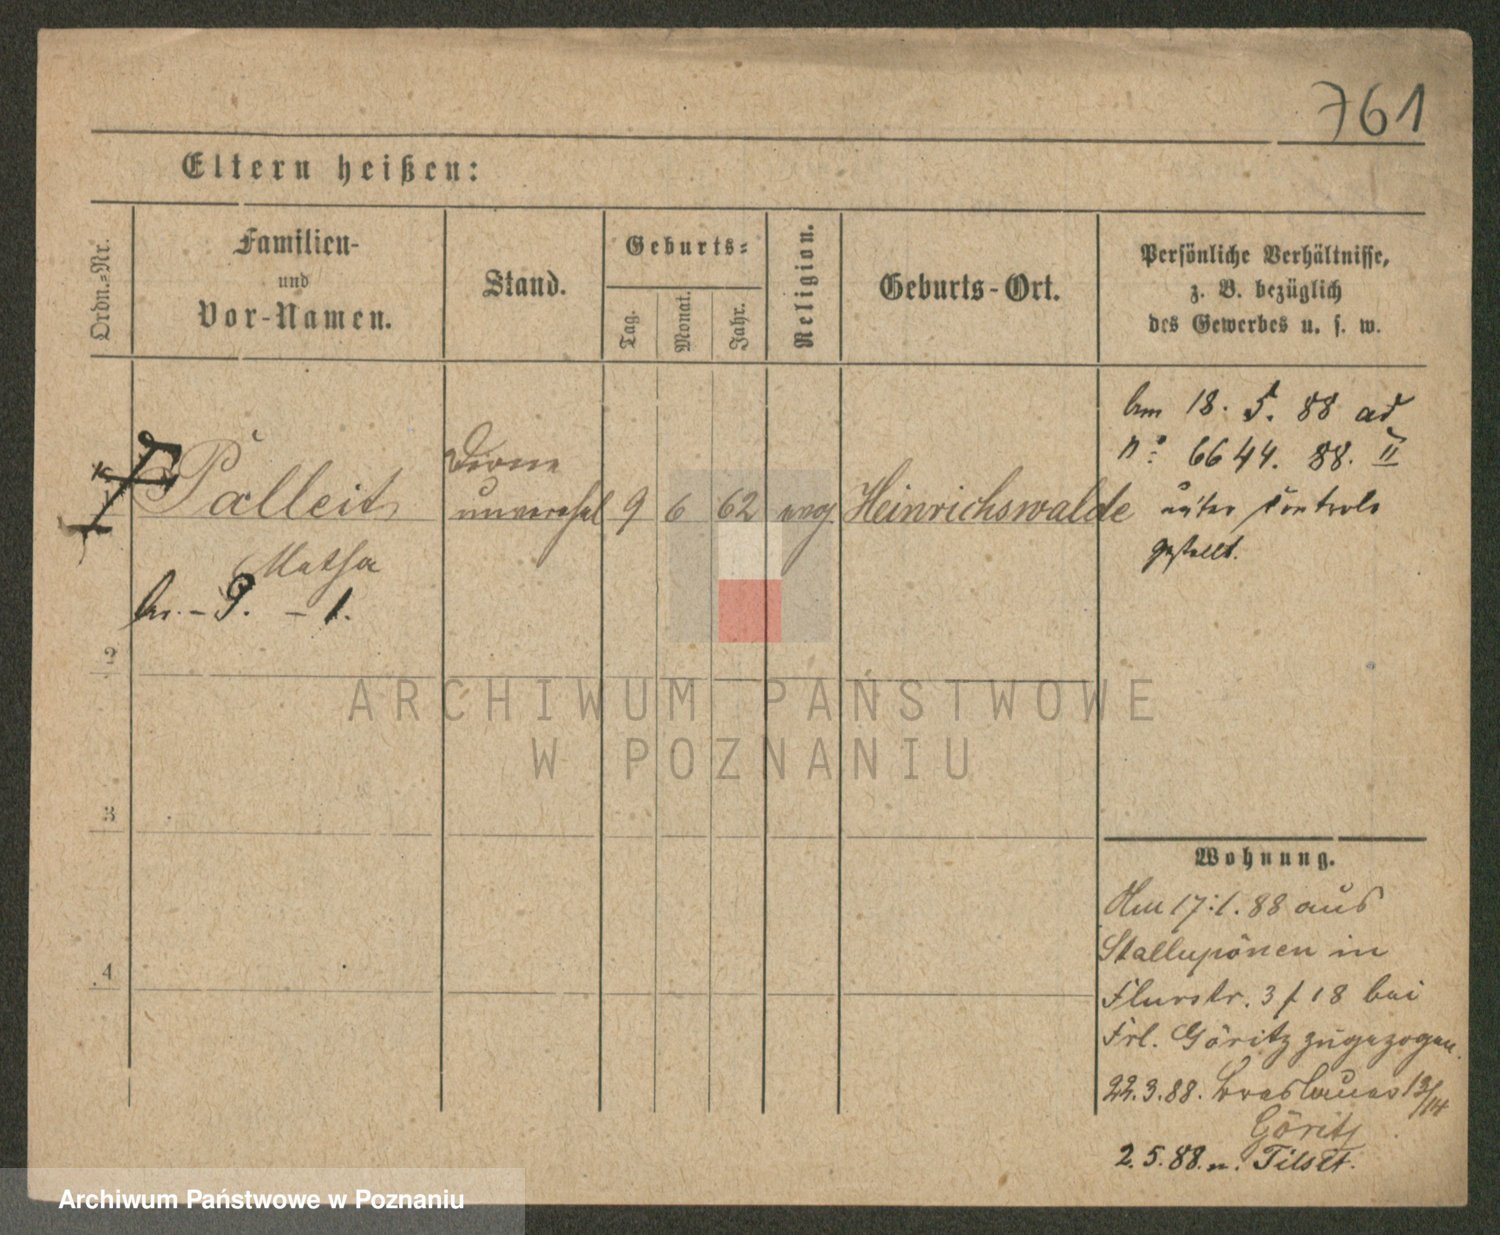 761
Eltern heißen:
Ordn.-Nr.
Familien-
und
Vor-Namen.
Stand.
Geburts-
Tag.
Monat.
Jahr.
Religion.
Geburts-Ort.
Persönliche Verhältnisse,
z. B. bezüglich
des Gewerbes u. s. w.
1
Palleit
Dirne
unverehel
9
6
62
evg.
Heinrichswalde
18. 5. 88 ad
No: 6644. 88. II
unter Controle
gestellt.
2
3
4
Wohnung.
Am 17.1.88 aus
Stallupönen in
Flurstr. 3/18 bei
Frl. Göritz zugezogen.
22.3.88. Breslauer 13/14
Göritz
2.5.88. n. Tilsit.
ARCHIWUM PAŃSTWOWE
W POZNANIU
Archiwum Państwowe w Poznaniu